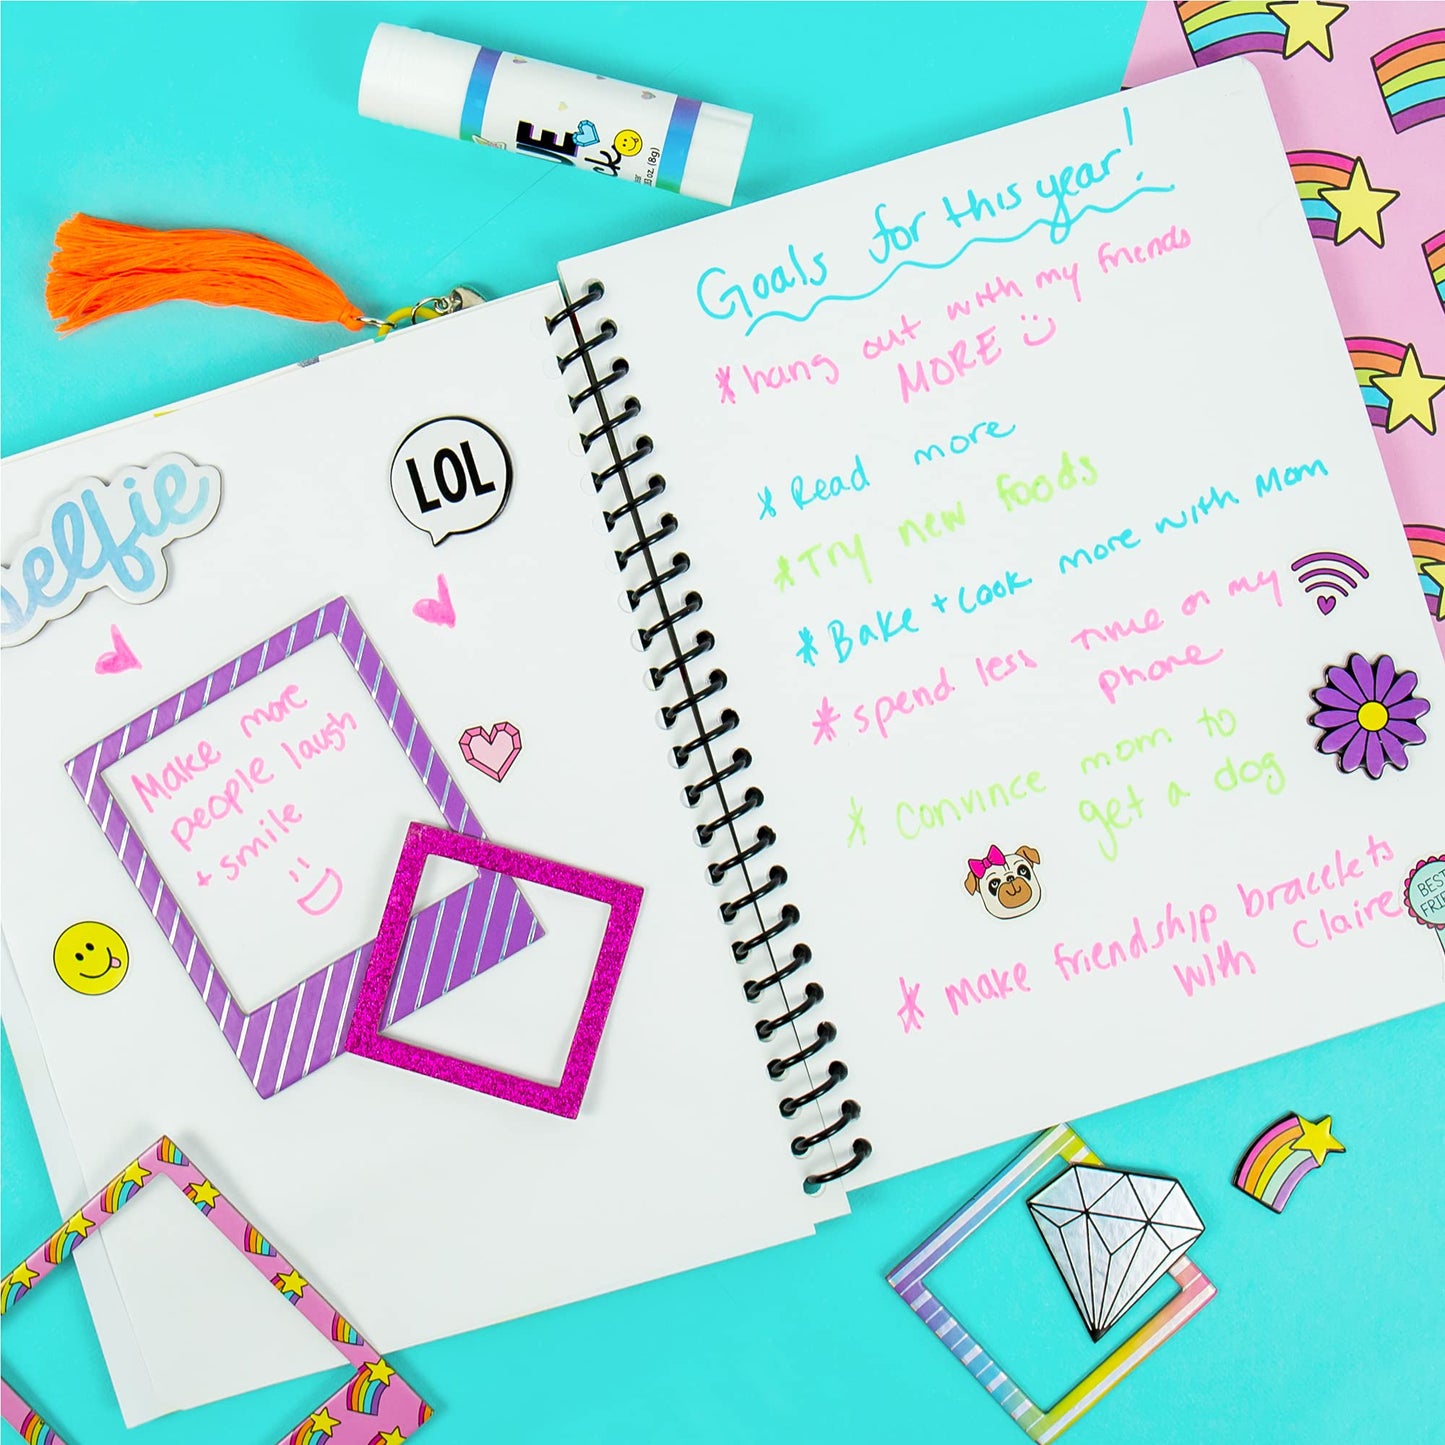 selfie
LOL
Make more
people laugh
+ smile
Goals for this year!
*hang out with my friends
MORE
* Read more
*Try new foods
*Bake + Cook more with Mom
*spend less time on my
phone
* Convince mom to
get a dog
* make friendship bracelets
with Claire
BEST
oz. (8g)